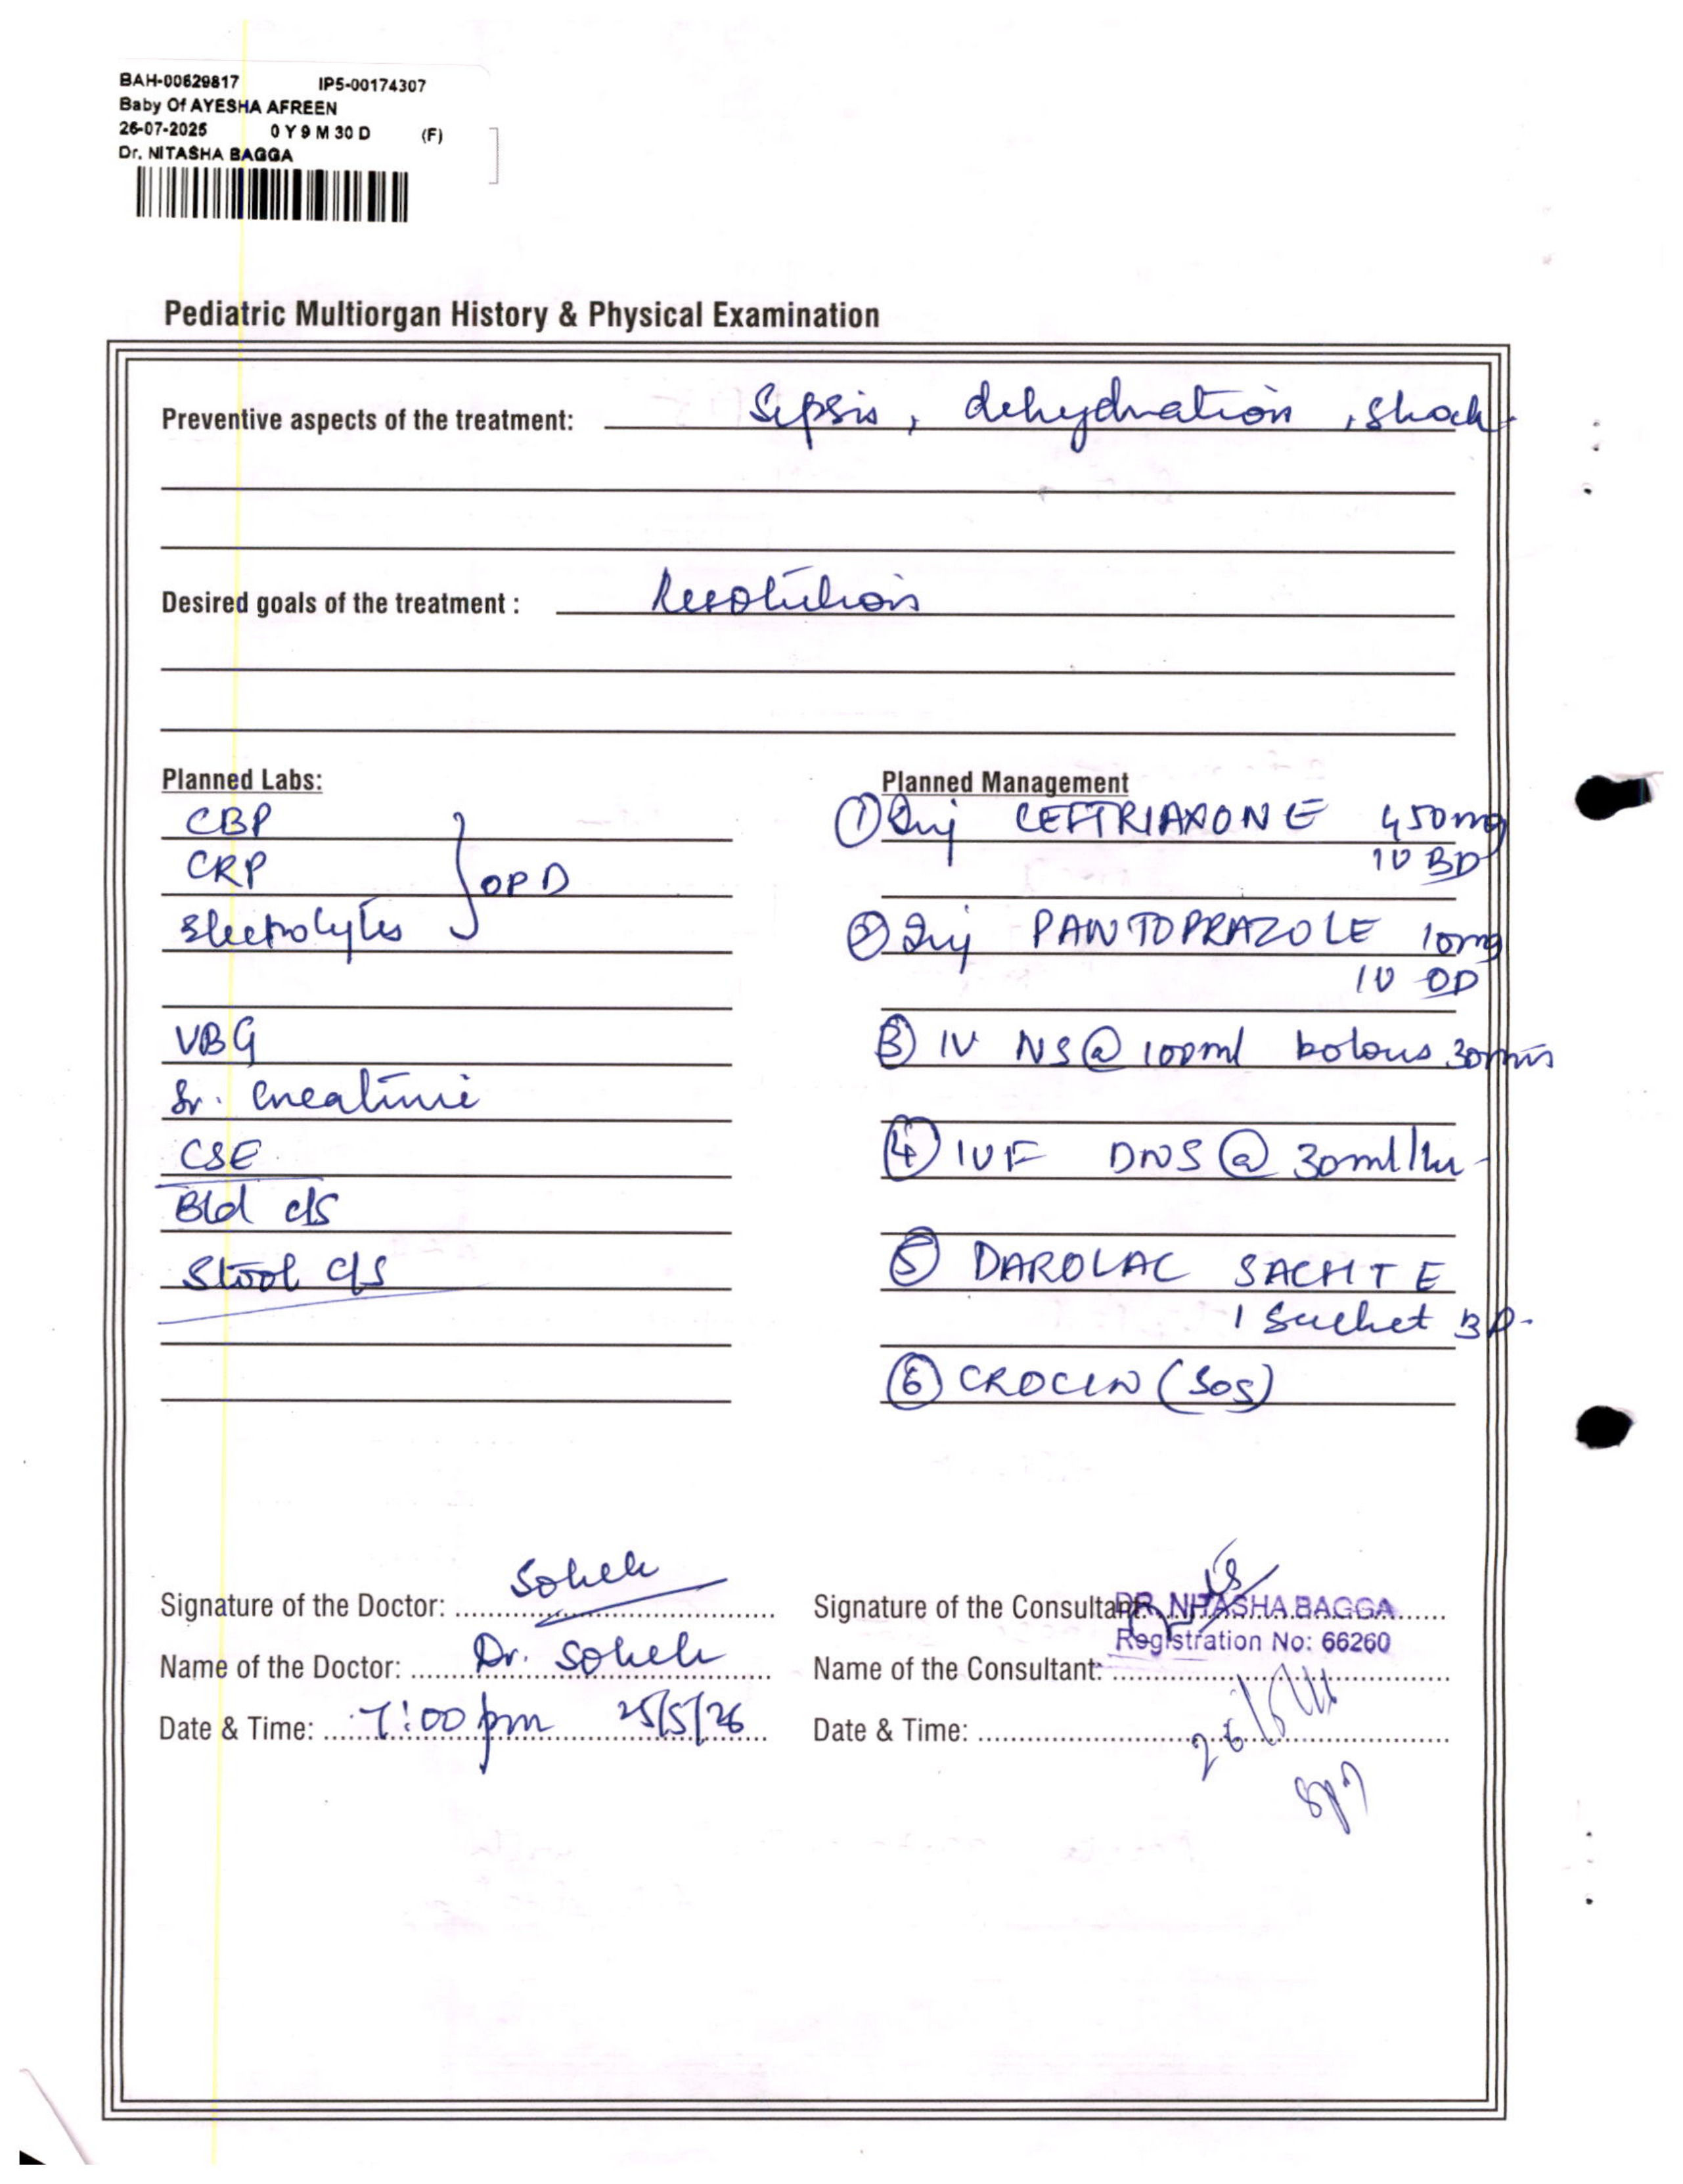 BAH-00629817 IP5-00174307
Baby Of AYESHA AFREEN
26-07-2025 0 Y 9 M 30 D (F)
Dr. NITASHA BAGGA
Pediatric Multiorgan History & Physical Examination
Preventive aspects of the treatment: Sepsis, dehydration, shock
Desired goals of the treatment : Resolution
Planned Labs:
CBP
CRP
Electrolytes
} OPD
VBG
Sr. Creatinine
CSE
Bld c/s
Stool c/s
Planned Management
① Inj CEFTRIAXONE 450mg
IV BD
② Inj PANTOPRAZOLE 10mg
IV OD
③ IV NS @ 100ml bolous 30mins
④ IVF DNS @ 30ml/hr
⑤ DAROLAC SACHTE
1 Sachet BD
⑥ CROCIN (SOS)
Signature of the Doctor: Soheli
Name of the Doctor: Dr. Soheli
Date & Time: 7:00 pm 25/5/26
Signature of the Consultant:
DR. NITASHA BAGGA
Registration No: 66260
Name of the Consultant:
Date & Time: